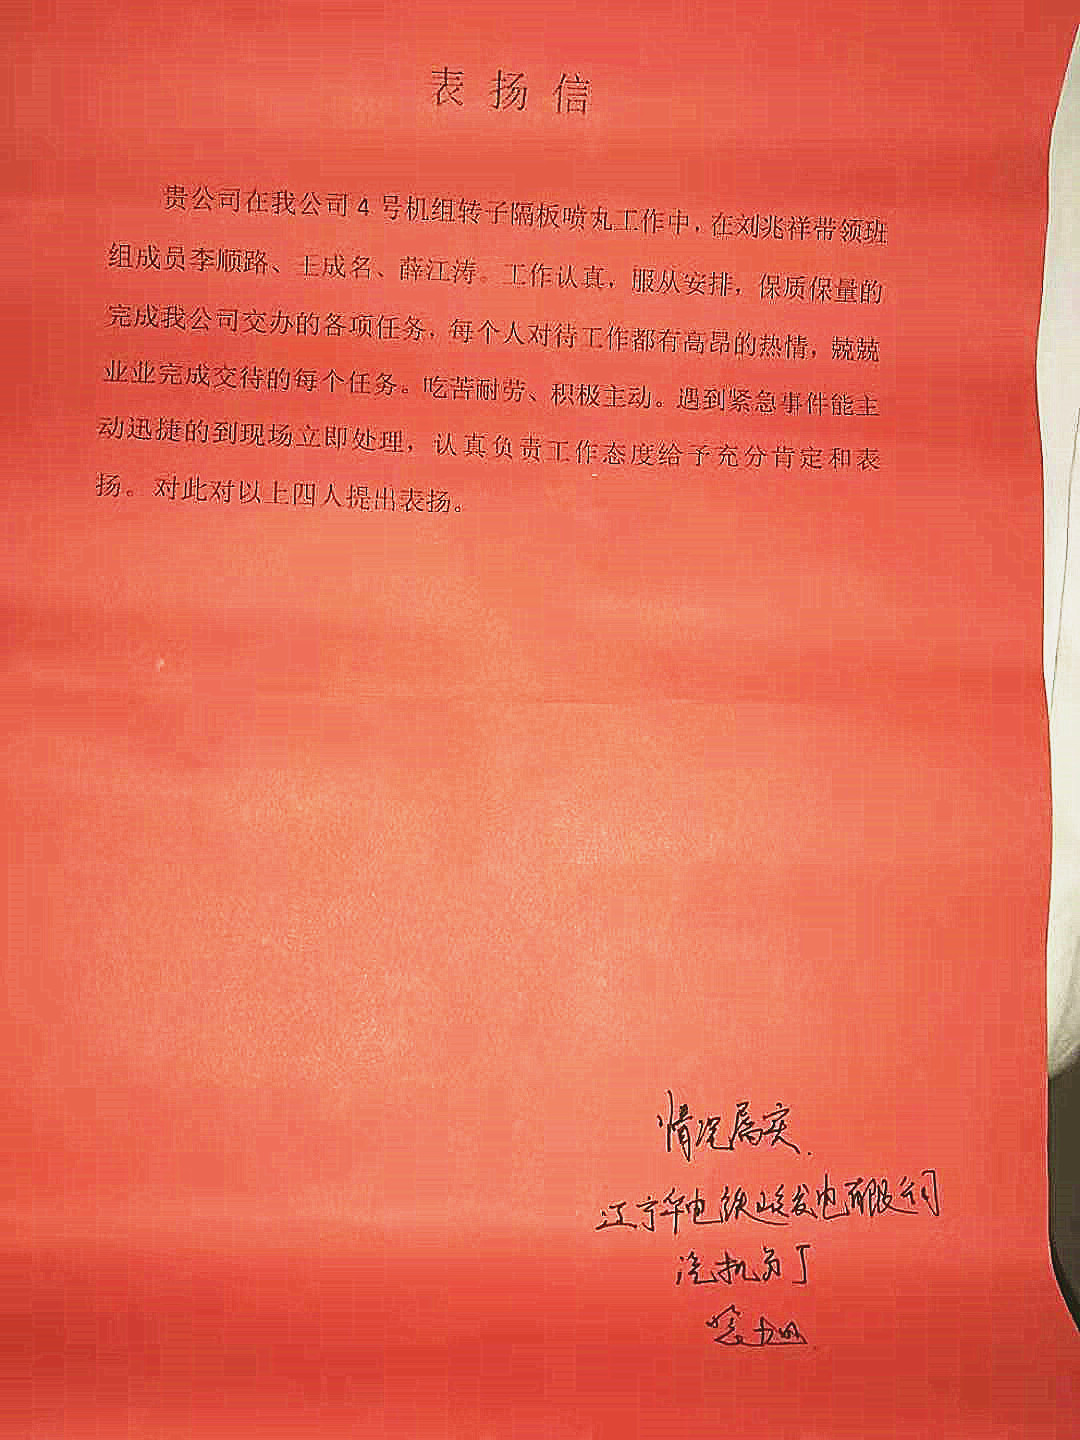 表扬信
贵公司在我公司4号机组转子隔板喷丸工作中，在刘兆祥带领班
组成员李顺路、王成名、薛江涛。工作认真，服从安排，保质保量的
完成我公司交办的各项任务，每个人对待工作都有高昂的热情，兢兢
业业完成交待的每个任务。吃苦耐劳、积极主动。遇到紧急事件能主
动迅捷的到现场立即处理，认真负责工作态度给予充分肯定和表
扬。对此对以上四人提出表扬。
情况属实.
辽宁华电铁岭发电有限公司
汽机分厂